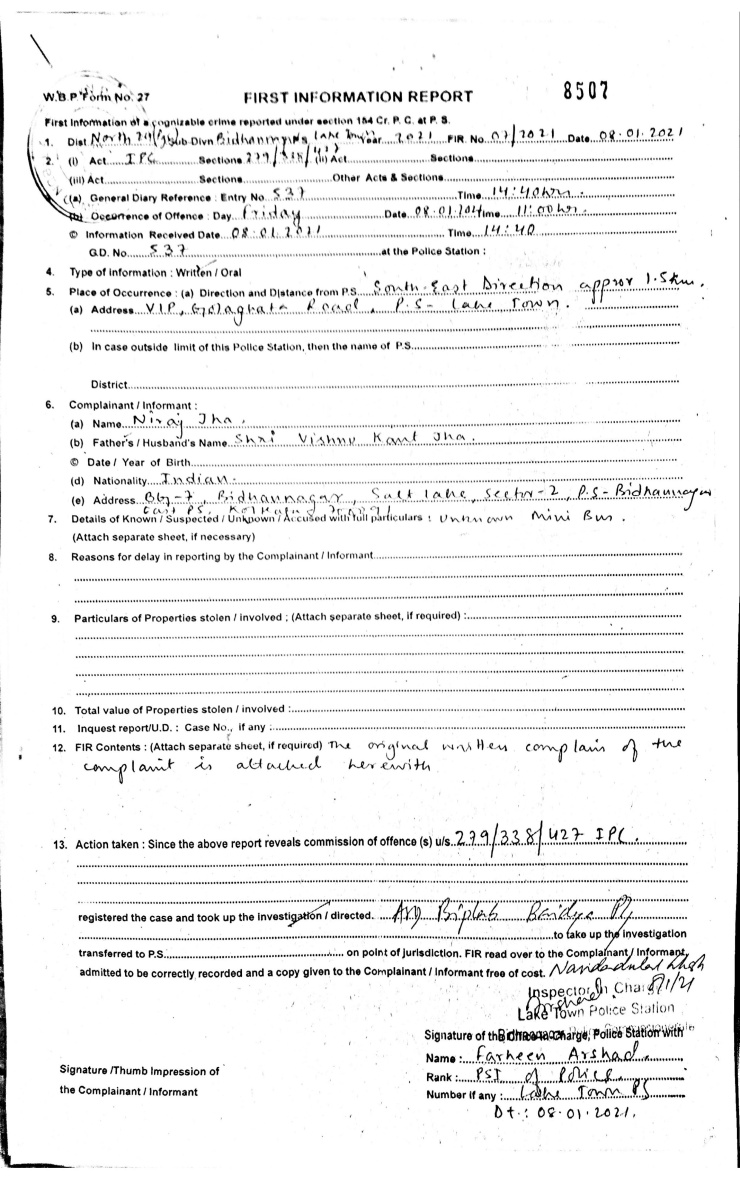 8507
W.B.P Form No. 27 FIRST INFORMATION REPORT
First Information of a cognizable crime reported under section 154 Cr. P. C. at P. S.
1. Dist North 24 Sub Divn Bidhannagar P.S Lake Town Year 2021 FIR No 07/2021 Date 08.01.2021
2. (i) Act IPC Sections 279/338/427 (ii) Act Sections
(iii) Act Sections Other Acts & Sections
(a) General Diary Reference : Entry No 537 Time 14:40 hrs.
(b) Occurrence of Offence : Day Friday Date 08.01.202 Time 11:00 hr.
© Information Received Date 08.01.2021 Time 14:40
G.D. No. 537 at the Police Station :
4. Type of Information : Written / Oral
5. Place of Occurrence : (a) Direction and Distance from P.S. South-East Direction approx 1.5 km.
(a) Address V.I.P, Golaghata Road, P.S- Lake Town.
(b) In case outside limit of this Police Station, then the name of P.S.
District
6. Complainant / Informant :
(a) Name Niraj Jha.
(b) Father's / Husband's Name Shri Vishnu Kant Jha.
© Date / Year of Birth
(d) Nationality Indian.
(e) Address BG-7, Bidhannagar, Salt lake, Sector-2, P.S- Bidhannagar
East PS, Kolkata
7. Details of Known / Suspected / Unknown / Accused with full particulars : Unknown Mini Bus.
(Attach separate sheet, if necessary)
8. Reasons for delay in reporting by the Complainant / Informant
9. Particulars of Properties stolen / involved : (Attach separate sheet, if required) :
10. Total value of Properties stolen / involved :
11. Inquest report/U.D. : Case No., if any :
12. FIR Contents : (Attach separate sheet, if required) The original written complain of the
complaint is attached herewith
13. Action taken : Since the above report reveals commission of offence (s) u/s. 279/338/427 IPC.
registered the case and took up the investigation / directed. Biplab Baidya
to take up the investigation
transferred to P.S. on point of jurisdiction. FIR read over to the Complainant / Informant,
admitted to be correctly recorded and a copy given to the Complainant / Informant free of cost.
8/1/21
Inspector In Charge
Lake Town Police Station
Signature of the Officer-in-Charge, Police Station with
Name : Farheen Arshad
Rank : PSI of Police
Number if any : Lake Town PS
Dt.: 08.01.2021.
Signature /Thumb Impression of
the Complainant / Informant